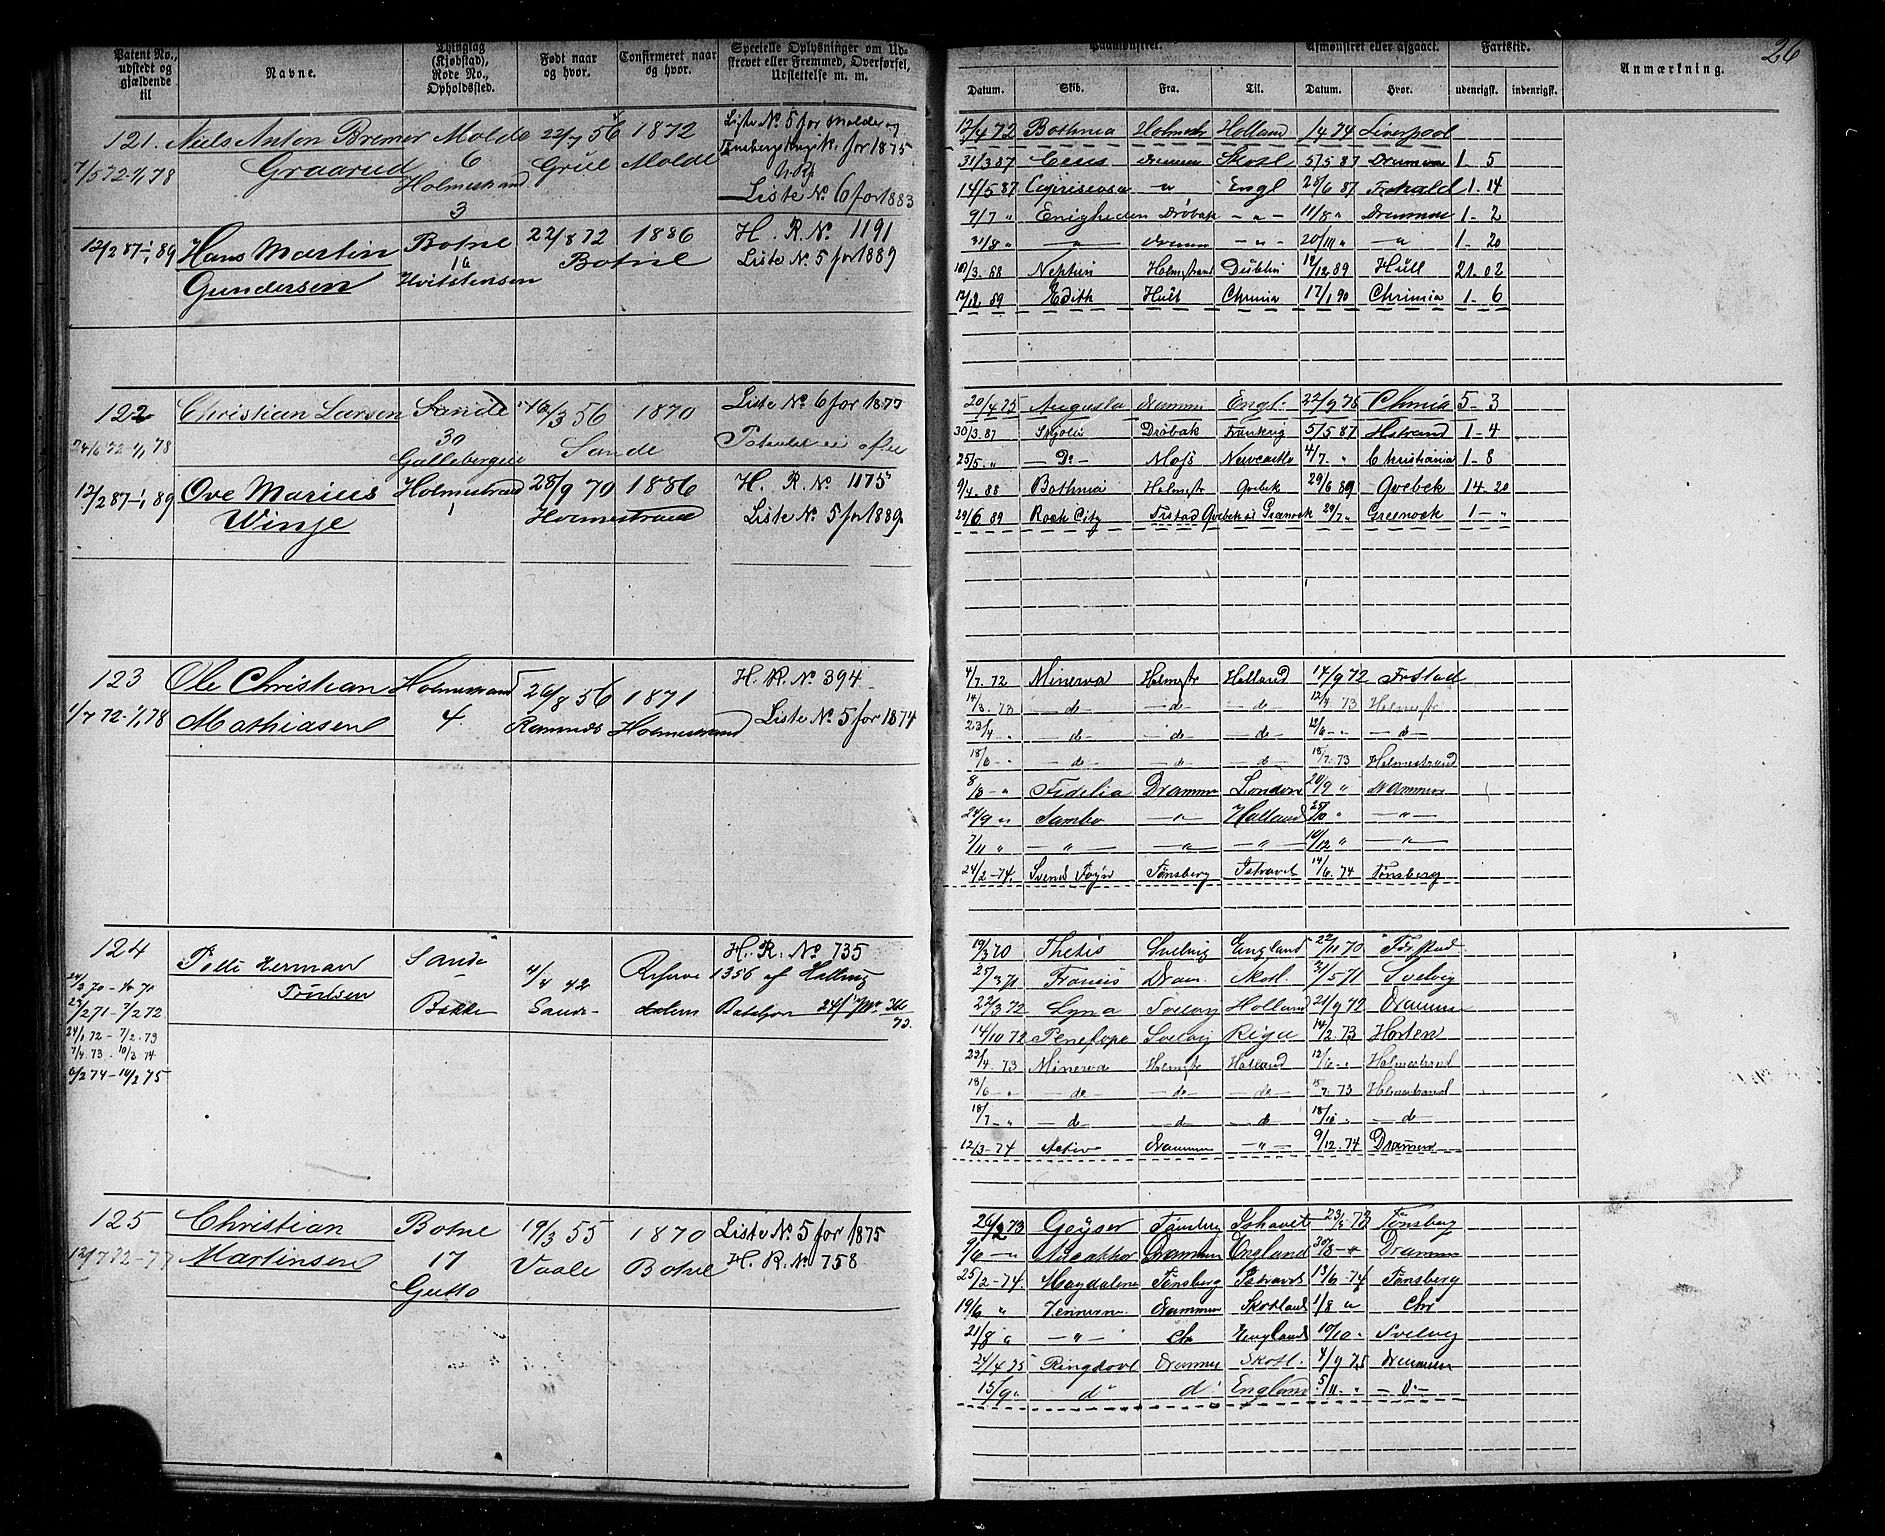 26
Patent No., udstedt og gjældende til
Navne.
Thinglag (Kjøbstad), Rode No., Opholdssted.
Født naar og hvor.
Confirmeret naar og hvor.
Specielle Oplysninger om Udskrevet eller Fremmed, Overførsel, Udslettelse m. m.
Paamønstret.
Afmønstret eller afgaaet.
Fartstid.
Anmærkning.
Datum. Skib. Fra. Til. Datum. Hvor. udenrigsk. indenrigsk.
121. Niels Anton Bremer Molde 22/7 56 1872 Liste No 5 for Molde og
Graarud 6 Grue Molde for 1875
7/5 72-1/1 78 Holmestrand
3 Liste No 6 for 1883
12/2 87-1/1 89 Hans Martin Botne 22/8 72 1886 H. R. No 1191
Gundersen 16 Botne Liste No 5 for 1889
Hvitstensen
12/4 72 Bothnia Holmestr Holland 1/4 74 Liverpool
31/3 87 Ceres Drammen Skotl 5/5 87 Drammen 1 5
14/5 87 " Engl 28/6 87 Frhald 1-14
9/7 " Enigheden Drøbak -"- 11/8 " Drammen 1-2
31/8 " -"- Drammen -"- 20/11 " -"- 1-20
10/3 88 Neptun Holmestrand Dublin 12/12 89 Hull 21-02
12/12 89 Edith Hull Chrnia 17/1 90 Chrnia 1-6
122 Christian Larsen Sande 16/3 56 1870 Liste No 6 for 1877
24/6 72-1/1 78 30 Sande
Gallebergeie
12/2 87-1/1 89 Ove Marius Holmestrand 28/9 70 1886 H. R. No 1175
Winje 1 Holmestrand Liste No 5 for 1889
20/4 75 Augusta Dramme Engl. 22/9 75 Chrnia 5-3
30/3 87 Drøbak Frankrig 5/5 87 Hstrand 1-4
25/5 " -Do- Moss Newcastle 4/7 - " Christiania 1-8
9/4 88 Bothnia Holmestr Qvebek 29/6 89 Qvebek 14-20
29/6 89 Rock City Frstad Qvebek Greenock 29/7 " Greenock 1-"
123 Ole Christian Holmestrand 26/8 56 1871 H. R. No 394
1/7 72-1/1 78 Mathiasen 4 Ramnæs Holmestrand Liste No 5 for 1874
4/7 72 Minerva Holmestr Holland 14/9 72 Frstad
14/3 73 -do- -do- -do- 12/4 73 Holmestr
23/4 " -do- -do- -do- 12/6 - " -do-
18/6 - " -do- -do- -do- 18/7 73 Holmestrand
8/8 - " Fidelia Dramme London 20/9 " Drammen
24/9 " Sambo -"- Holland 25/10 " -"-
7/11 " -"- -"- -"- 10/12 " -"-
24/2-74 Svend Foyn Tønsberg Ishavet 14/6 74 Tønsberg
124 Herman Sande 4/4 42 Reserve H. R. No 735
Poulsen Bakke Sande 1356 af Hallingdalens Bataljon
24/3 70 - 70
25/2 71 - 7/2 72
24/1 72 - 7/2 73
7/4 73 - 10/3 74
6/2 74 - 10/2 75
19/3 70 Thetis Svelvig England 22/11 70 Fredstad
25/3 71 Francis Dram. Skotl. 31/5 71 Svelvig
22/3 72 Lyna Svelvig Holland 21/9 72 Drammen
14/10 72 Penelope Svelvig Riga 14/2 73 Horten
23/4 73 Minerva Holmestr Holland 12/6 - Holmestrand
18/6 - " -do- -do- -do- 15/7 73 Holmestrand
18/7 - " -do- -do- -do- 18/10 - -do-
12/3-74 Activ Drammen -"- 9/12-74 Drammen
125 Christian Botne 19/3 55 1870 Liste No 5 for 1875
12/7 72-77 Martinsen 17 Vaale Botne H. R. No 758
Gutto
26/2 73 Geyser Tønsberg Ishavet 23/5 73 Tønsberg
9/6 - " Drammen England 30/8 - " Dramme
25/2-74 Magdalena Tønsberg Ishavet 13/6-74 Tønsberg
19/6 " Drammen Skotland 1/8 " Chr
21/8 " -"- Chr England 10/10 - Svelvig
24/4 75 Ringdove Dramme Skotl. 4/9 75 Drammen
15/9 " do do England 5/11 - " -do-